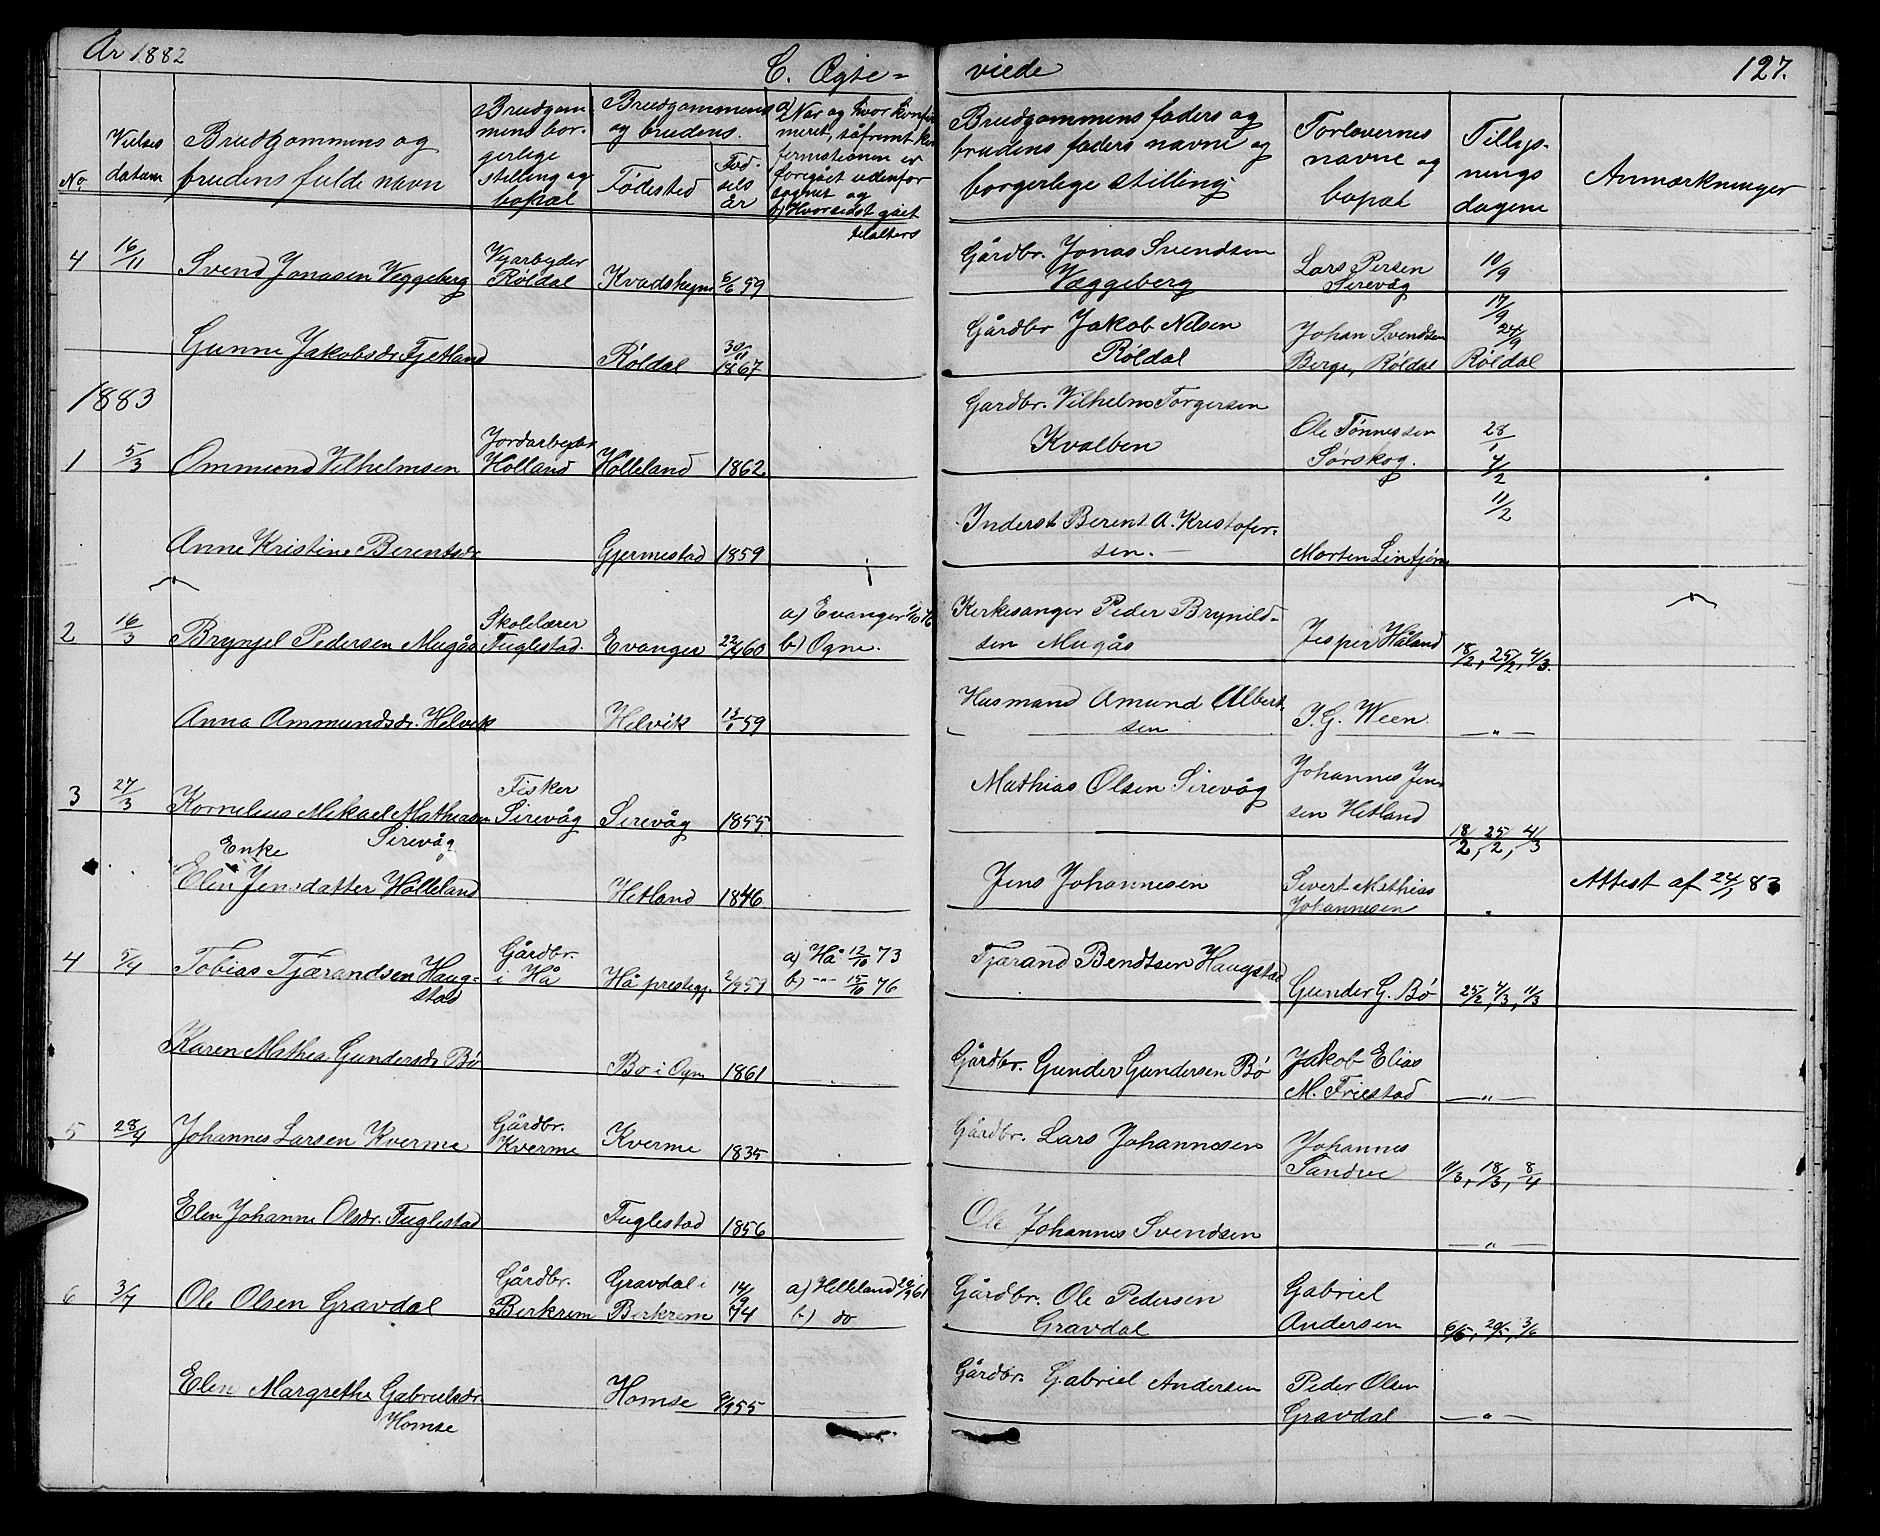 År 1882
C. Ægte-
viede
127.
No
Vielses
datum
Brudgommens og
brudens fulde navn
Brudgom-
mens bor-
gerlige
stilling og
bopæl
Brudgommens
og brudens.
Fødested
Fød-
sels
år
a) Når og hvor konfir
meret, såfremt kon
firmationen er
foregået udenfor
sognet og
b) Hvorsidst gået
tilalters
Brudgommens faders og
brudens faders navne og
borgerlige stilling
Forlovernes
navne og
bopæl
Tillys-
nings
dagene
Anmærkninger
4 16/11 Svend Jonasen Veggeberg Vejarbejder Røldal 6/6 59
Gårdbr. Jonas Svendsen
Væggeberg
Lars Persen
Sirevåg
10/9
17/9
24/9
Gunne Jakobsdr. Fjetland Røldal 30/11 1867
Gårdbr Jakob Nilsen
Røldal
Johan Svendsen
Berge, Røldal
Røldal
1883
1 5/3 Ommund Vilhelmsen Jordarbejder Holland Hølleland 1862
Gardbr. Vilhelm Torgersen
Kvalben
Ole Tønnessen
Sørskog.
28/1
4/2
11/2
Anne Kristine Berentsdr Gjermestad 1859
Inderst Berent A. Kristofer-
sen.
Morten
2 16/3 Brynjel Pedersen Mugås Skolelærer Fuglestad. Evanger 60
a) Evanger
b) Ogne.
Kirkesanger Peder Brynild-
sen Mugås
Jesper Håland
18/2, 25/2, 4/3.
Anna Ommundsdr. Helvik Helvik 59
Husmand Amund Albert-
sen
J. G. Ween
— " —
3 27/3 Kornelius Mikael Mathiesen Sirevåg Fisker Sirevåg Sirevåg 1855
Mathias Olsen Sirevåg
Johannes Jen-
sen Hetland
18/2, 25/2, 4/3
Enke
Elen Jensdatter Hølleland Hetland 1846
Jens Johannesen
Sivert Mathias
Johannesen
"
Attest af 24/1 83
4 5/4 Tobias Tjærandsen Haug-
stad
Gårdbr.
i Hå
Hå prestegj. 59
a) Hå 12/10 73
b) — 15/10 76
Tjærand Bendtsen Haugstad
Gunder G. Bø
25/2, 4/3, 11/3
Karen Mathea Gundersdr Bø Bø i Ogne 1861
Gårdbr. Gunder Gundersen Bø
Jakob Elias
M. Friestad
— " —
5 28/4 Johannes Larsen Kverme Gårdbr. Kverme Kverme 1835
Gårdbr. Lars Johannesen
Johannes
Sandve
11/3, 18/3, 8/4
Elen Johanne Olsdr. Fuglestad Fuglestad 1856
Ole Johannes Svendsen
— " —
6 3/7 Ole Olsen Gravdal Gårdbr. Birkrem Gravdal i Birkrem 14/9 44
a) Helleland 61
b) do
Gårdbr. Ole Pedersen
Gravdal
Gabriel
Andersen
6/5, 20/5, 3/6
Elen Margrethe Gabrielsdr.
Homse
Homse 55
Gårdbr. Gabriel Andersen
Peder Olsen
Gravdal
— " —